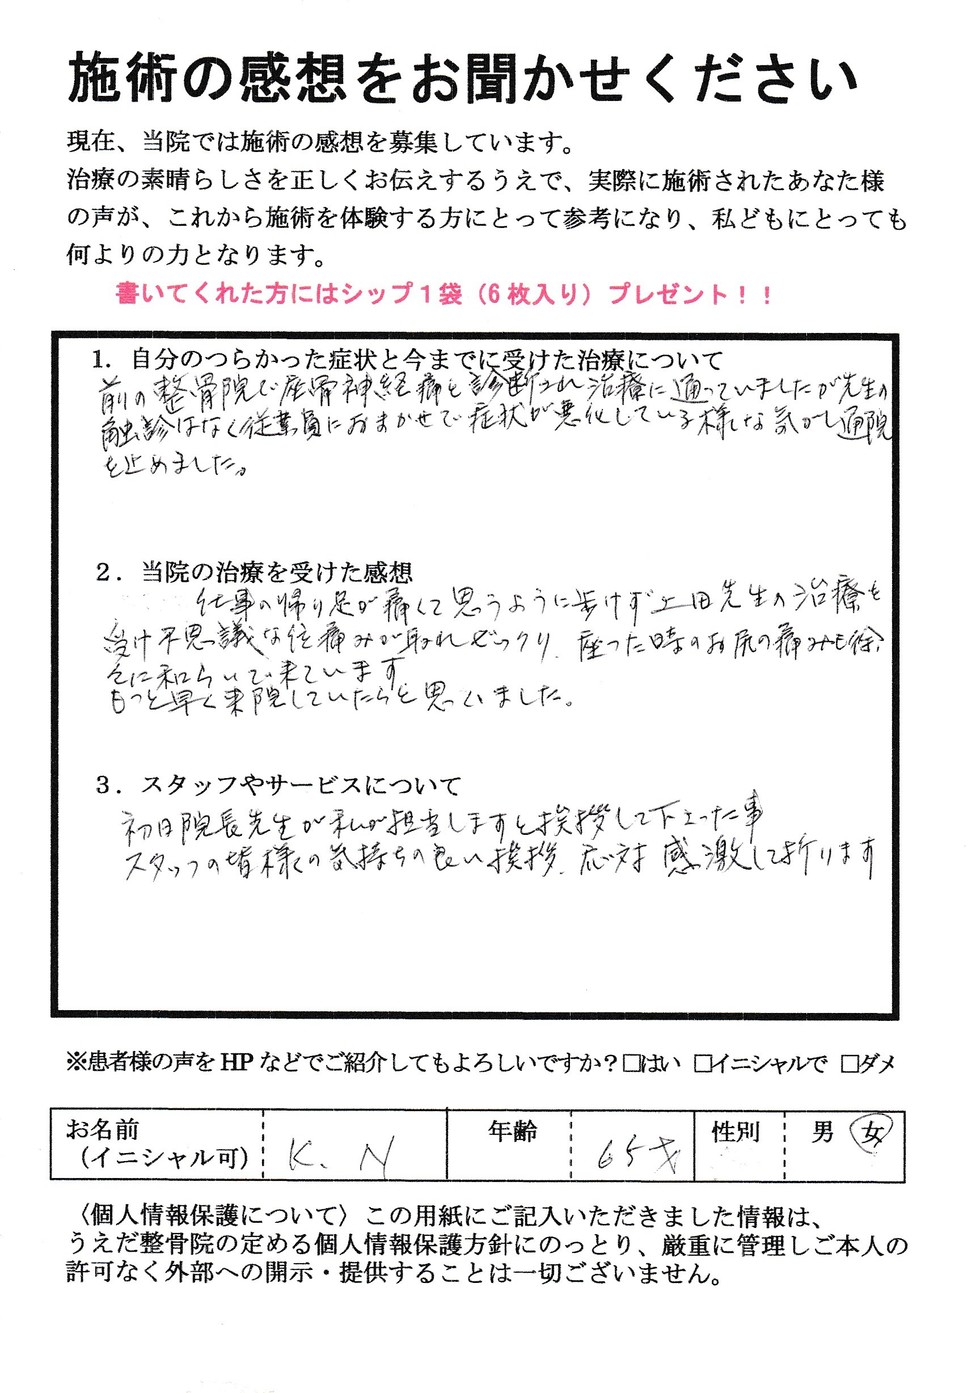 施術の感想をお聞かせください
現在、当院では施術の感想を募集しています。
治療の素晴らしさを正しくお伝えするうえで、実際に施術されたあなた様
の声が、これから施術を体験する方にとって参考になり、私どもにとっても
何よりの力となります。
書いてくれた方にはシップ１袋（6 枚入り）プレゼント！！
1．自分のつらかった症状と今までに受けた治療について
前の整骨院で座骨神経痛と診断され治療に通っていましたが先生の
触診はなく従業員におまかせで症状が悪化している様な気がし通院
を止めました。
2．当院の治療を受けた感想
仕事の帰り足が痛くて思うように歩けず上田先生の治療を
受け不思議な位痛みが取れびっくり、座った時のお尻の痛みも徐
々に和らいで来ています
もっと早く来院していたらと思いました。
3．スタッフやサービスについて
初日院長先生が私が担当しますと挨拶して下さった事
スタッフの皆様の気持ちの良い挨拶、応対 感激して折ります
※患者様の声を HP などでご紹介してもよろしいですか？□はい □イニシャルで □ダメ
お名前 年齢 性別 男 女
（イニシャル可） K. N 65才
〈個人情報保護について〉この用紙にご記入いただきました情報は、
うえだ整骨院の定める個人情報保護方針にのっとり、厳重に管理しご本人の
許可なく外部への開示・提供することは一切ございません。